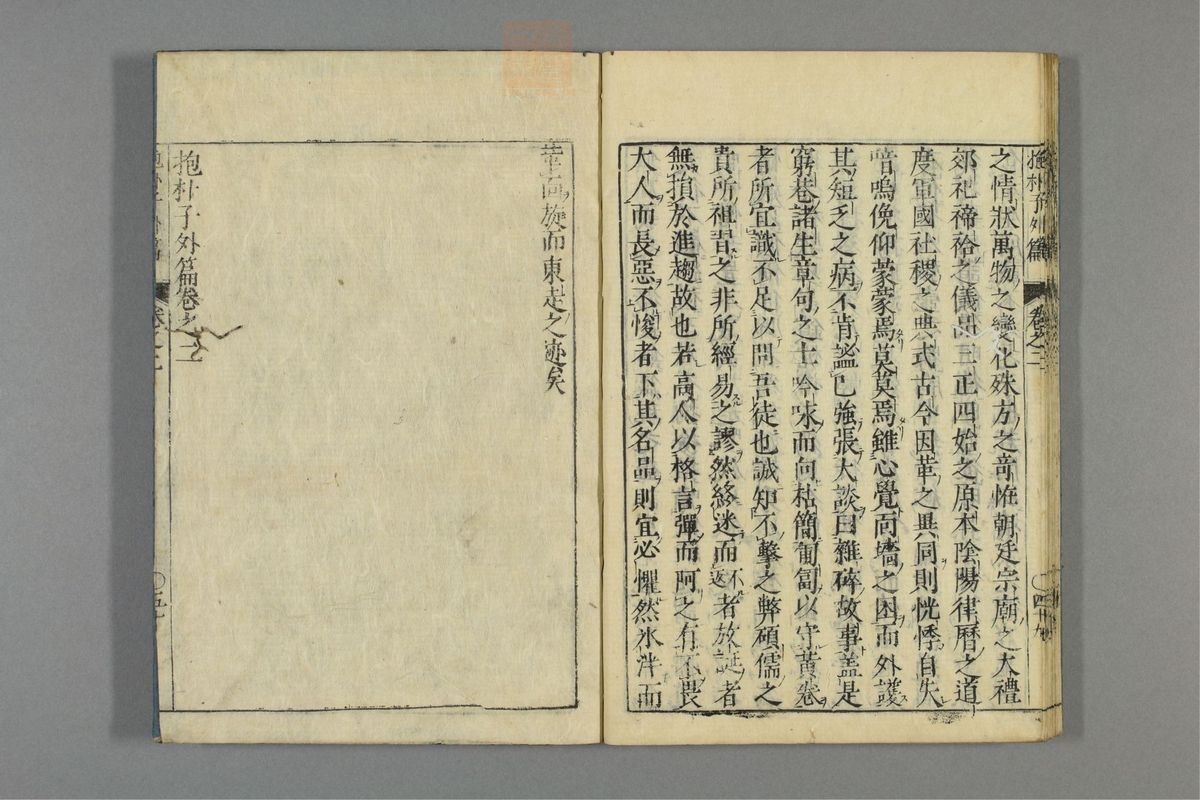 抱朴子外篇 卷之二 〇四十九
之情狀萬物之變化殊方之竒恠朝廷宗廟之大禮
郊祀禘祫之儀品三正四始之原本陰陽律曆之道
度軍國社稷之典式古今因革之異同則恍悸自失
喑嗚俛仰蒙蒙焉莫莫焉雖心覺面墻之困而外護
其短乏之病不肯謐已強張大談曰雜碎故事盖是
窮巷諸生章句之士吟咏而向枯簡匍匐以守黃卷
者所宜識不足以問吾徒也誠知不學之弊碩儒之
貴所祖習之非所經易之謬然終迷而不返者放誕者
無損於進趨故也若高人以格言彈而呵之有不畏
大人而長惡不悛者下其名品則宜必懼然冰泮而
革面旋而東走之迹矣
抱朴子外篇卷之二
抱朴子外篇 卷之二 〇五十